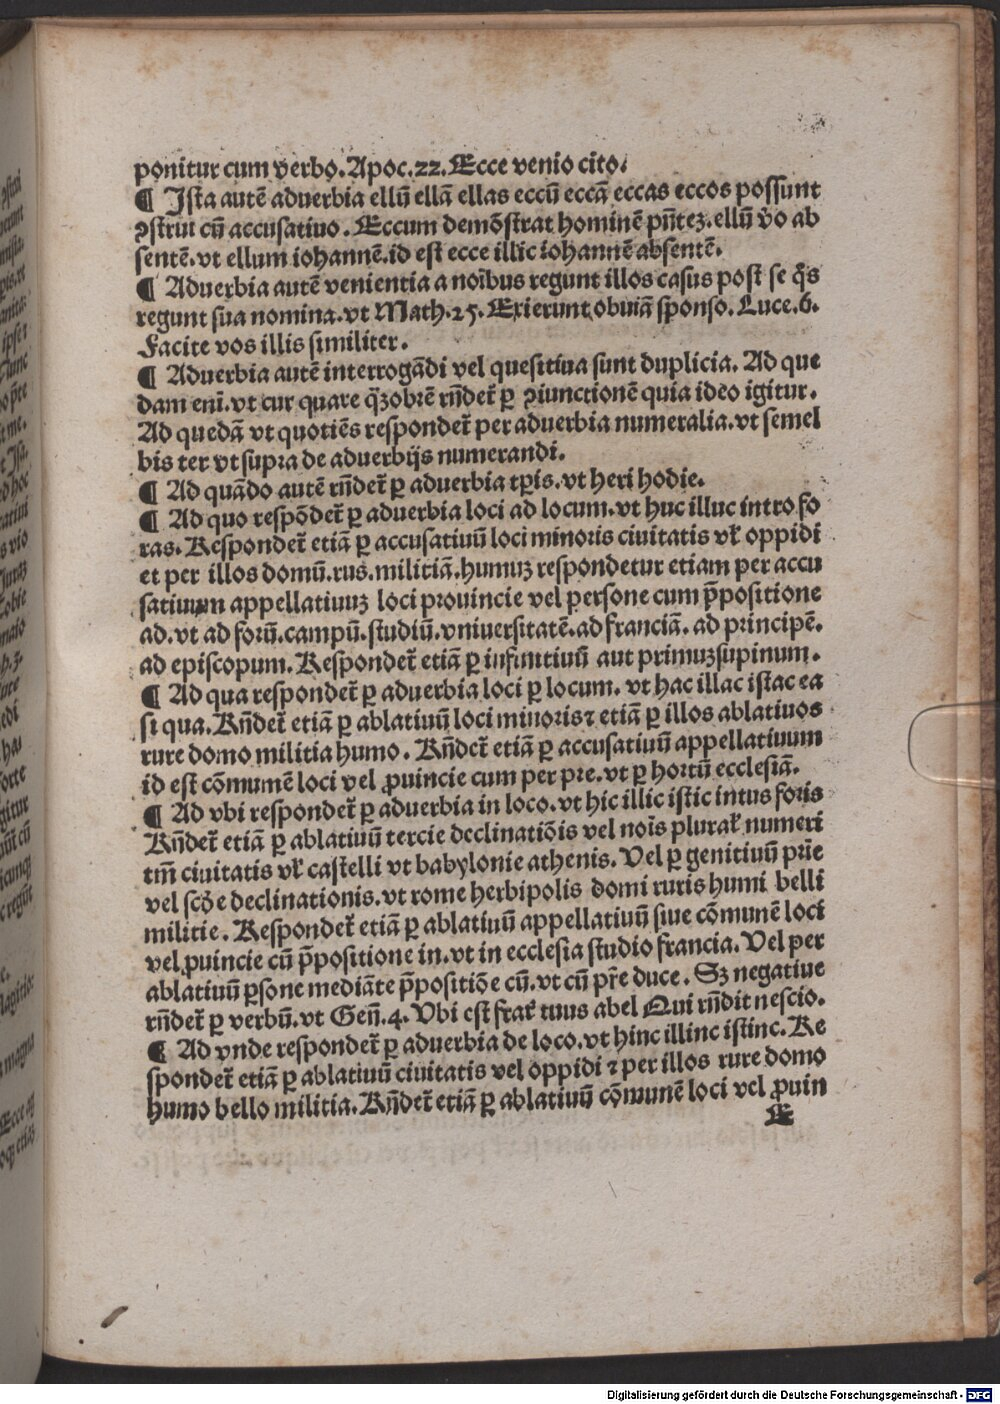 ponitur cum verbo. Apoc. 22. Ecce venio cito.
¶ Ista autē aduerbia ellū ellā ellas eccū eccā eccas eccos possunt
ꝯstrui cū accusatiuo. Eccum demōstrat hominē pn̄tez. ellū v̄o ab
sentē. vt ellum iohannē. id est ecce illic iohannē absentē.
¶ Aduerbia autē venientia a noībus regunt illos casus post se q̄s
regunt sua nomina. vt Math. 25. Exierunt obuiā sponso. Luce. 6.
Facite vos illis similiter.
¶ Aduerbia autē interrogādi vel quesitiua sunt duplicia. Ad que
dam enī. vt cur quare q̄zobrē rn̄det̄ ꝑ ꝯiunctionē quia ideo igitur.
Ad quedā vt quotiēs respondet̄ per aduerbia numeralia. vt semel
bis ter vt supra de aduerbijs numerandi.
¶ Ad quādo autē rn̄det̄ ꝑ aduerbia tp̄is. vt heri hodie.
¶ Ad quo respōdet̄ ꝑ aduerbia loci ad locum. vt huc illuc intro fo
ras. Respondet̄ etiā ꝑ accusatiuū loci minoris ciuitatis vł oppidi
et per illos domū. rus. militiā. humuz respondetur etiam per accu
satiuum appellatiuuz loci prouincie vel persone cum p̄positione
ad. vt ad forū. campū. studiū. vniuersitatē. ad franciā. ad principē.
ad episcopum. Respondet̄ etiā ꝑ infinitiuū aut primuzsupinum.
¶ Ad qua respondet̄ ꝑ aduerbia loci ꝑ locum. vt hac illac istac ea
si qua. Rn̄det̄ etiā ꝑ ablatiuū loci minoris ⁊ etiā ꝑ illos ablatiuos
rure domo militia humo. Rn̄det̄ etiā ꝑ accusatiuū appellatiuum
id est cōmunē loci vel ꝓuincie cum per pre. vt ꝑ hortū ecclesiā.
¶ Ad vbi respondet̄ ꝑ aduerbia in loco. vt hic illic istic intus foris
Rn̄det̄ etiā ꝑ ablatiuū tercie declinatiōis vel noīs plurał numeri
tm̄ ciuitatis vł castelli vt babylonie athenis. Vel ꝑ genitiuū prīe
vel scd̄e declinationis. vt rome herbipolis domi ruris humi belli
militie. Respondet̄ etiā ꝑ ablatiuū appellatiuū siue cōmunē loci
vel ꝓuincie cū p̄positione in. vt in ecclesia studio francia. Vel per
ablatiuū ꝑsone mediāte p̄positiōe cū. vt cū pr̄e duce. Sz negatiue
rn̄det̄ ꝑ verbū. vt Gen̄. 4. Vbi est frat̄ tuus abel Qui rn̄dit nescio.
¶ Ad vnde respondet̄ ꝑ aduerbia de loco. vt hinc illinc istinc. Re
spondet̄ etiā ꝑ ablatiuū ciuitatis vel oppidi ⁊ per illos rure domo
humo bello militia. Rn̄det̄ etiā ꝑ ablatiuū cōmunē loci vel ꝓuin
E
Digitalisierung gefördert durch die Deutsche Forschungsgemeinschaft - DFG